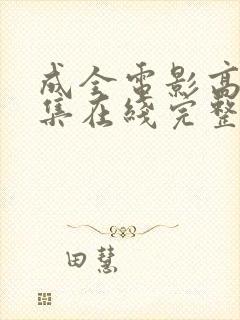 成全电影高
集在线完整
田慧